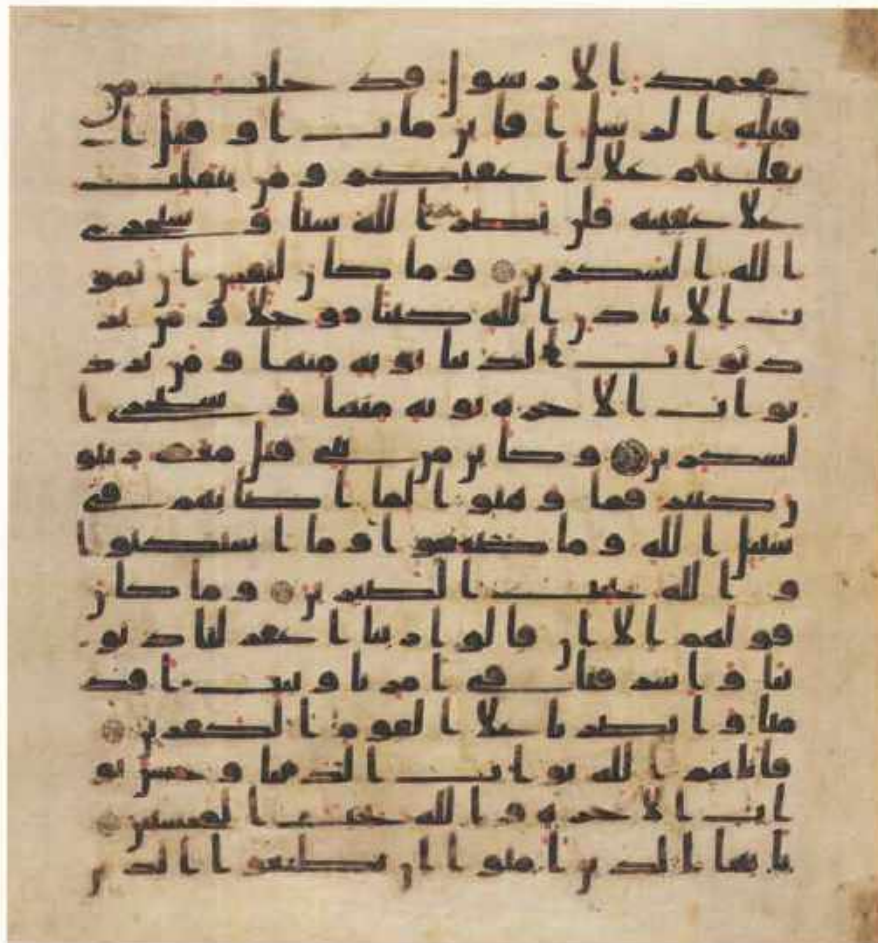 محمد الا رسول قد خلت من
قبله الرسل افاين مات او قتل ا
نقلبتم علا اعقبكم ومن ينقلب
علا عقبيه فلن يضر الله شيا وسيجزي
الله الشكرين وما كان لنفس ان تمو
ت الا باذن الله كتبا موجلا ومن ير
د ثواب الدنيا نوته منها ومن يرد
ثواب الاخرة نوته منها وسنجزي ا
لشكرين وكاين من نبي قتل معه ربيو
ن كثير فما وهنوا لما اصابهم في
سبيل الله وما ضعفوا وما استكنوا
والله يحب الصبرين وما كان
قولهم الا ان قالوا ربنا اغفر لنا ذنو
بنا واسرفنا في امرنا وثبت اقد
منا وانصرنا علا القوم الكفرين
فاتاهم الله ثواب الدنيا وحسن ثو
اب الاخرة والله يحب المحسنين
يايها الذين امنوا ان تطيعوا الذين